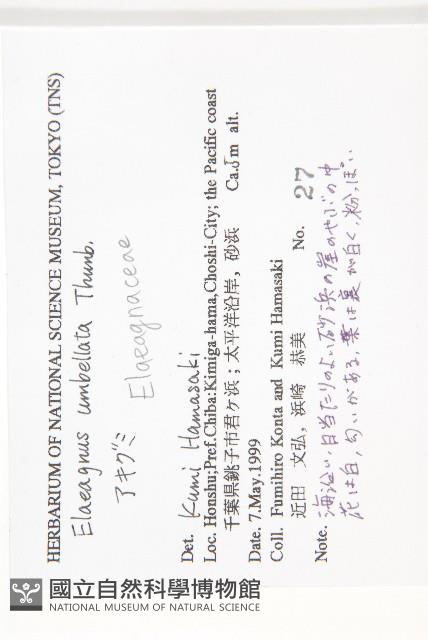 HERBARIUM OF NATIONAL SCIENCE MUSEUM, TOKYO (TNS)
Elaeagnus umbellata Thunb.
アキグミ Elaeagnaceae
Det. Kumi Hamasaki
Loc. Honshu;Pref.Chiba:Kimiga-hama,Choshi-City; the Pacific coast
千葉県銚子市君ヶ浜；太平洋沿岸，砂浜 Ca.5m alt.
Date. 7.May.1999
Coll. Fumihiro Konta and Kumi Hamasaki
近田 文弘，浜崎 恭美 No. 27
Note. 海沿い，日当たりのよい砂浜の崖のやぶの中
花は白，匂いがある，葉は裏が白く，粉っぽい
國立自然科學博物館
NATIONAL MUSEUM OF NATURAL SCIENCE